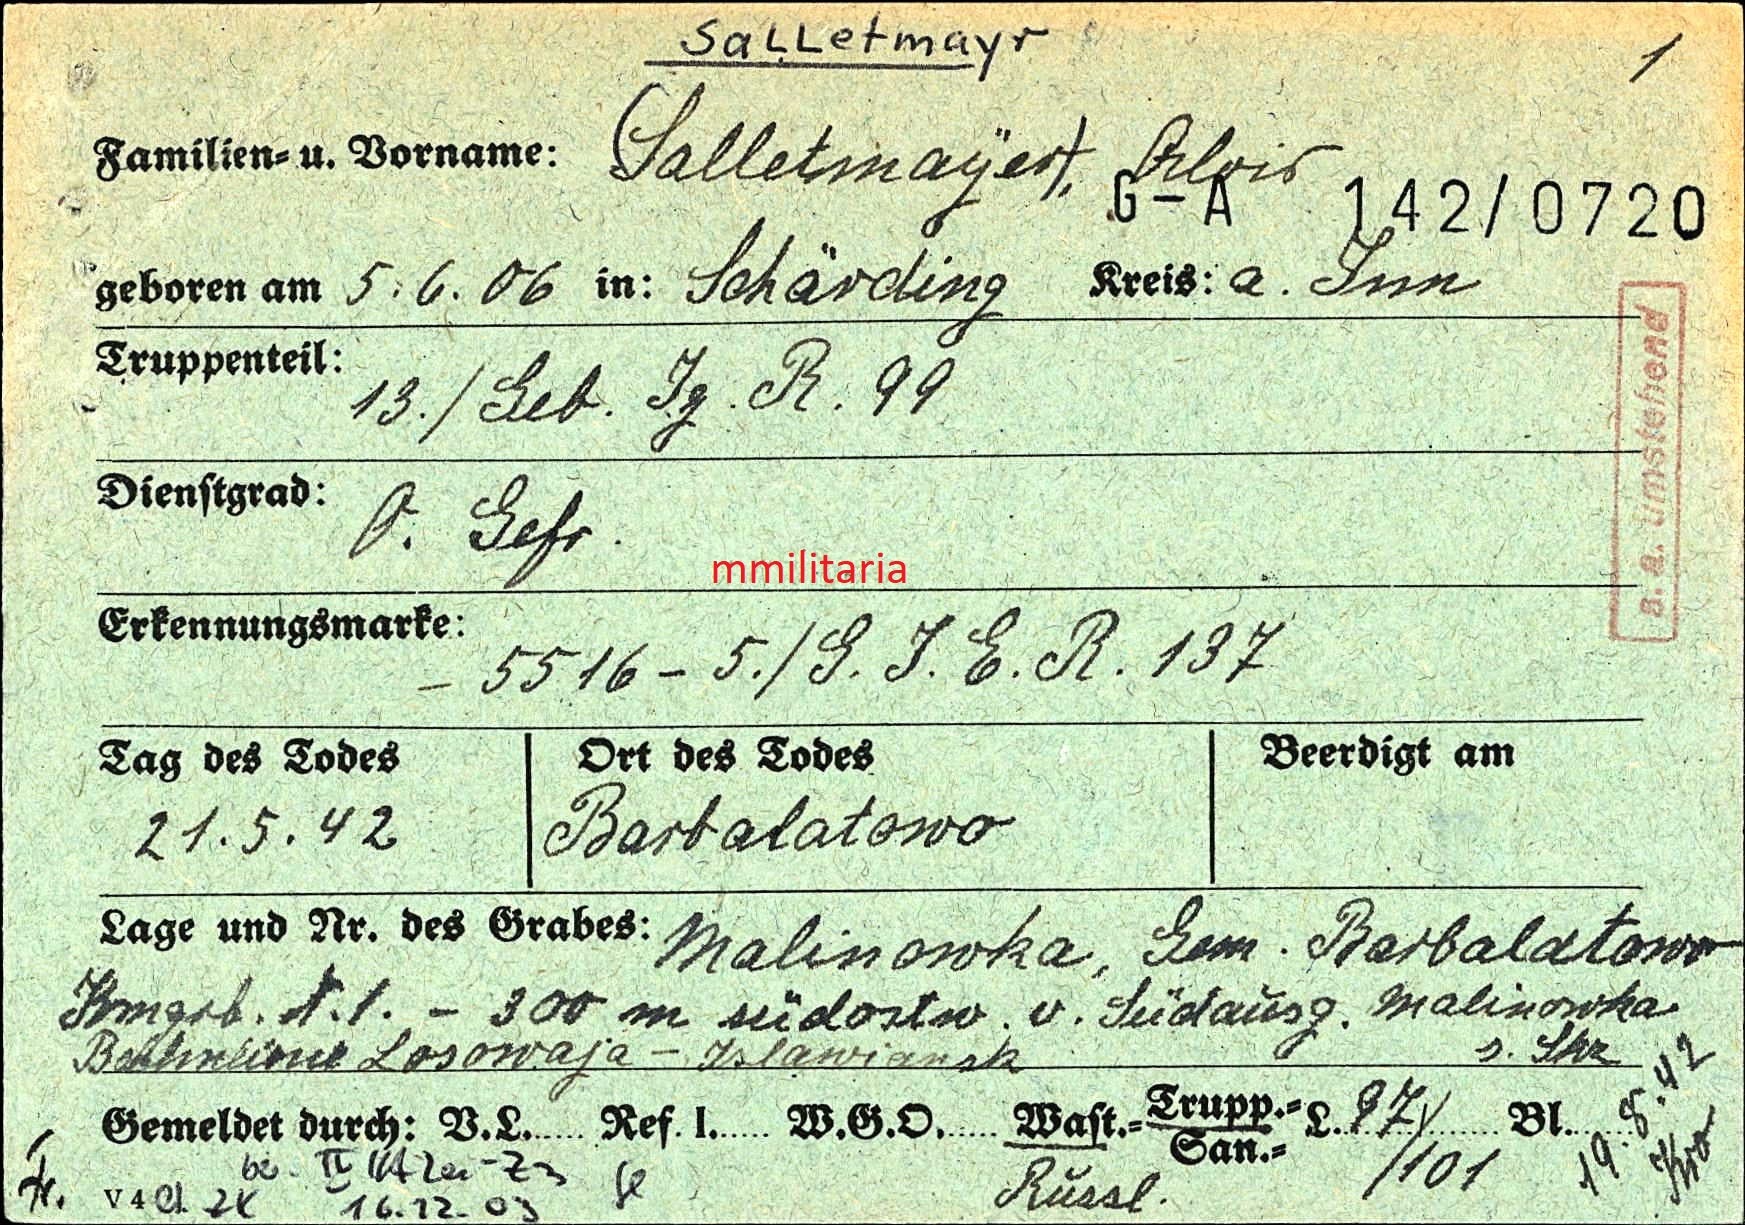 Salletmayr
1
Familien- u. Vorname: (Salletmayer), Alois
G-A 142/0720
geboren am 5.6.06 in: Schärding Kreis: a. Inn
Truppenteil:
13./Geb. Jg. R. 99
Dienstgrad: O. Gefr.
mmilitaria
s. a. Umstehend
Erkennungsmarke:
- 5516 - 5./G. J. E. R. 137
Tag des Todes Ort des Todes Beerdigt am
21.5.42 Barbalatowo
Lage und Nr. des Grabes: Malinowka, Gem. Barbalatowo
300 m südostw. v. Südausg. Malinowka
Bahnlinie Losowaja - Islawiansk s. Skz
Gemeldet durch: V.L..... Ref. I..... W.G.O..... Wast.- Trupp.- L. 97/ Bl.
San.- /101
19.8.42
Russl.
V 4
16.12.03